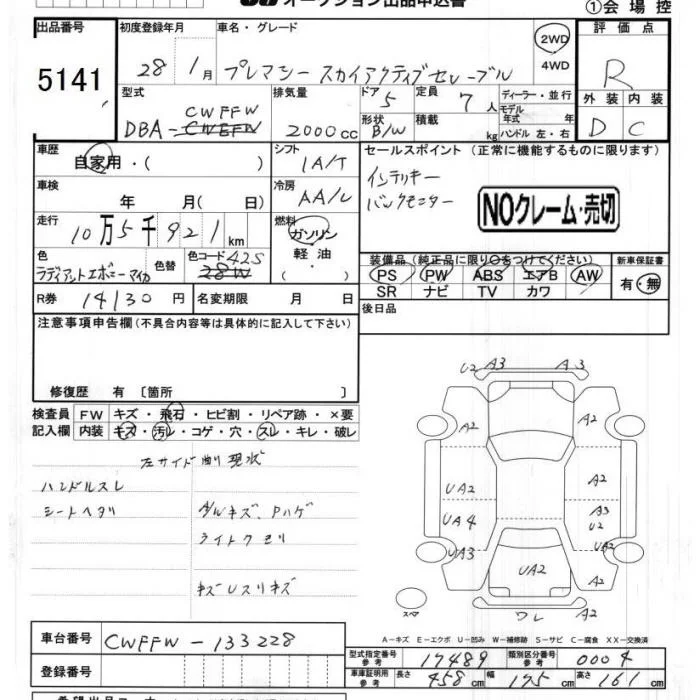 オークション出品申込書
①会場控
出品番号 初度登録年月 車名・グレード 評価点
5141
28年 1月 プレマシー スカイアクティブセレーブル 2WD
4WD R
型式 排気量 ドア 5 定員 7人 ディーラー・並行 外装 内装
モデル
CWFFW
DBA-CWEFW 2000cc 形状 B/W 積載 kg 年式 年 D C
ハンドル 左・右
車歴 自家用・( ) シフト IA/T セールスポイント (正常に機能するものに限ります)
車検 年 月( 日) 冷房 AA/C インテリキー
バックモニター
NOクレーム・売切
走行 10万5千921km 燃料 ガソリン
軽油
・( )
色 ラディアントエボニーマイカ 色替 色コード 42S
28W
装備品 (純正品に限り○をつけてください) 新車保証書
PS PW ABS エアB AW 有・無
SR ナビ TV カワ
R券 14130円 名変期限 月 日 後日品
注意事項申告欄(不具合内容等は具体的に記入して下さい)
修復歴 有 [箇所 ]
検査員 FW キズ・飛石・ヒビ割・リペア跡・×要
記入欄 内装 キズ・汚レ・コゲ・穴・スレ・キレ・破レ
左サイド削リ現状
ハンドルスレ
シートヘタリ
ライトクモリ
U2 A3 A3
A2 A2
UA2 A2
UA4 A3
U2
UA3 UA2
UA2 A2
スペア ワレ A2
A-キズ E-エクボ U-凹み W-補修跡 S-サビ C-腐食 XX-交換済
車台番号 CWFFW-133228
登録番号
型式指定番号 参考 17489 類別区分番号 参考 0004
車庫証明用 参考 長さ 458cm 幅 175cm 高さ 161cm